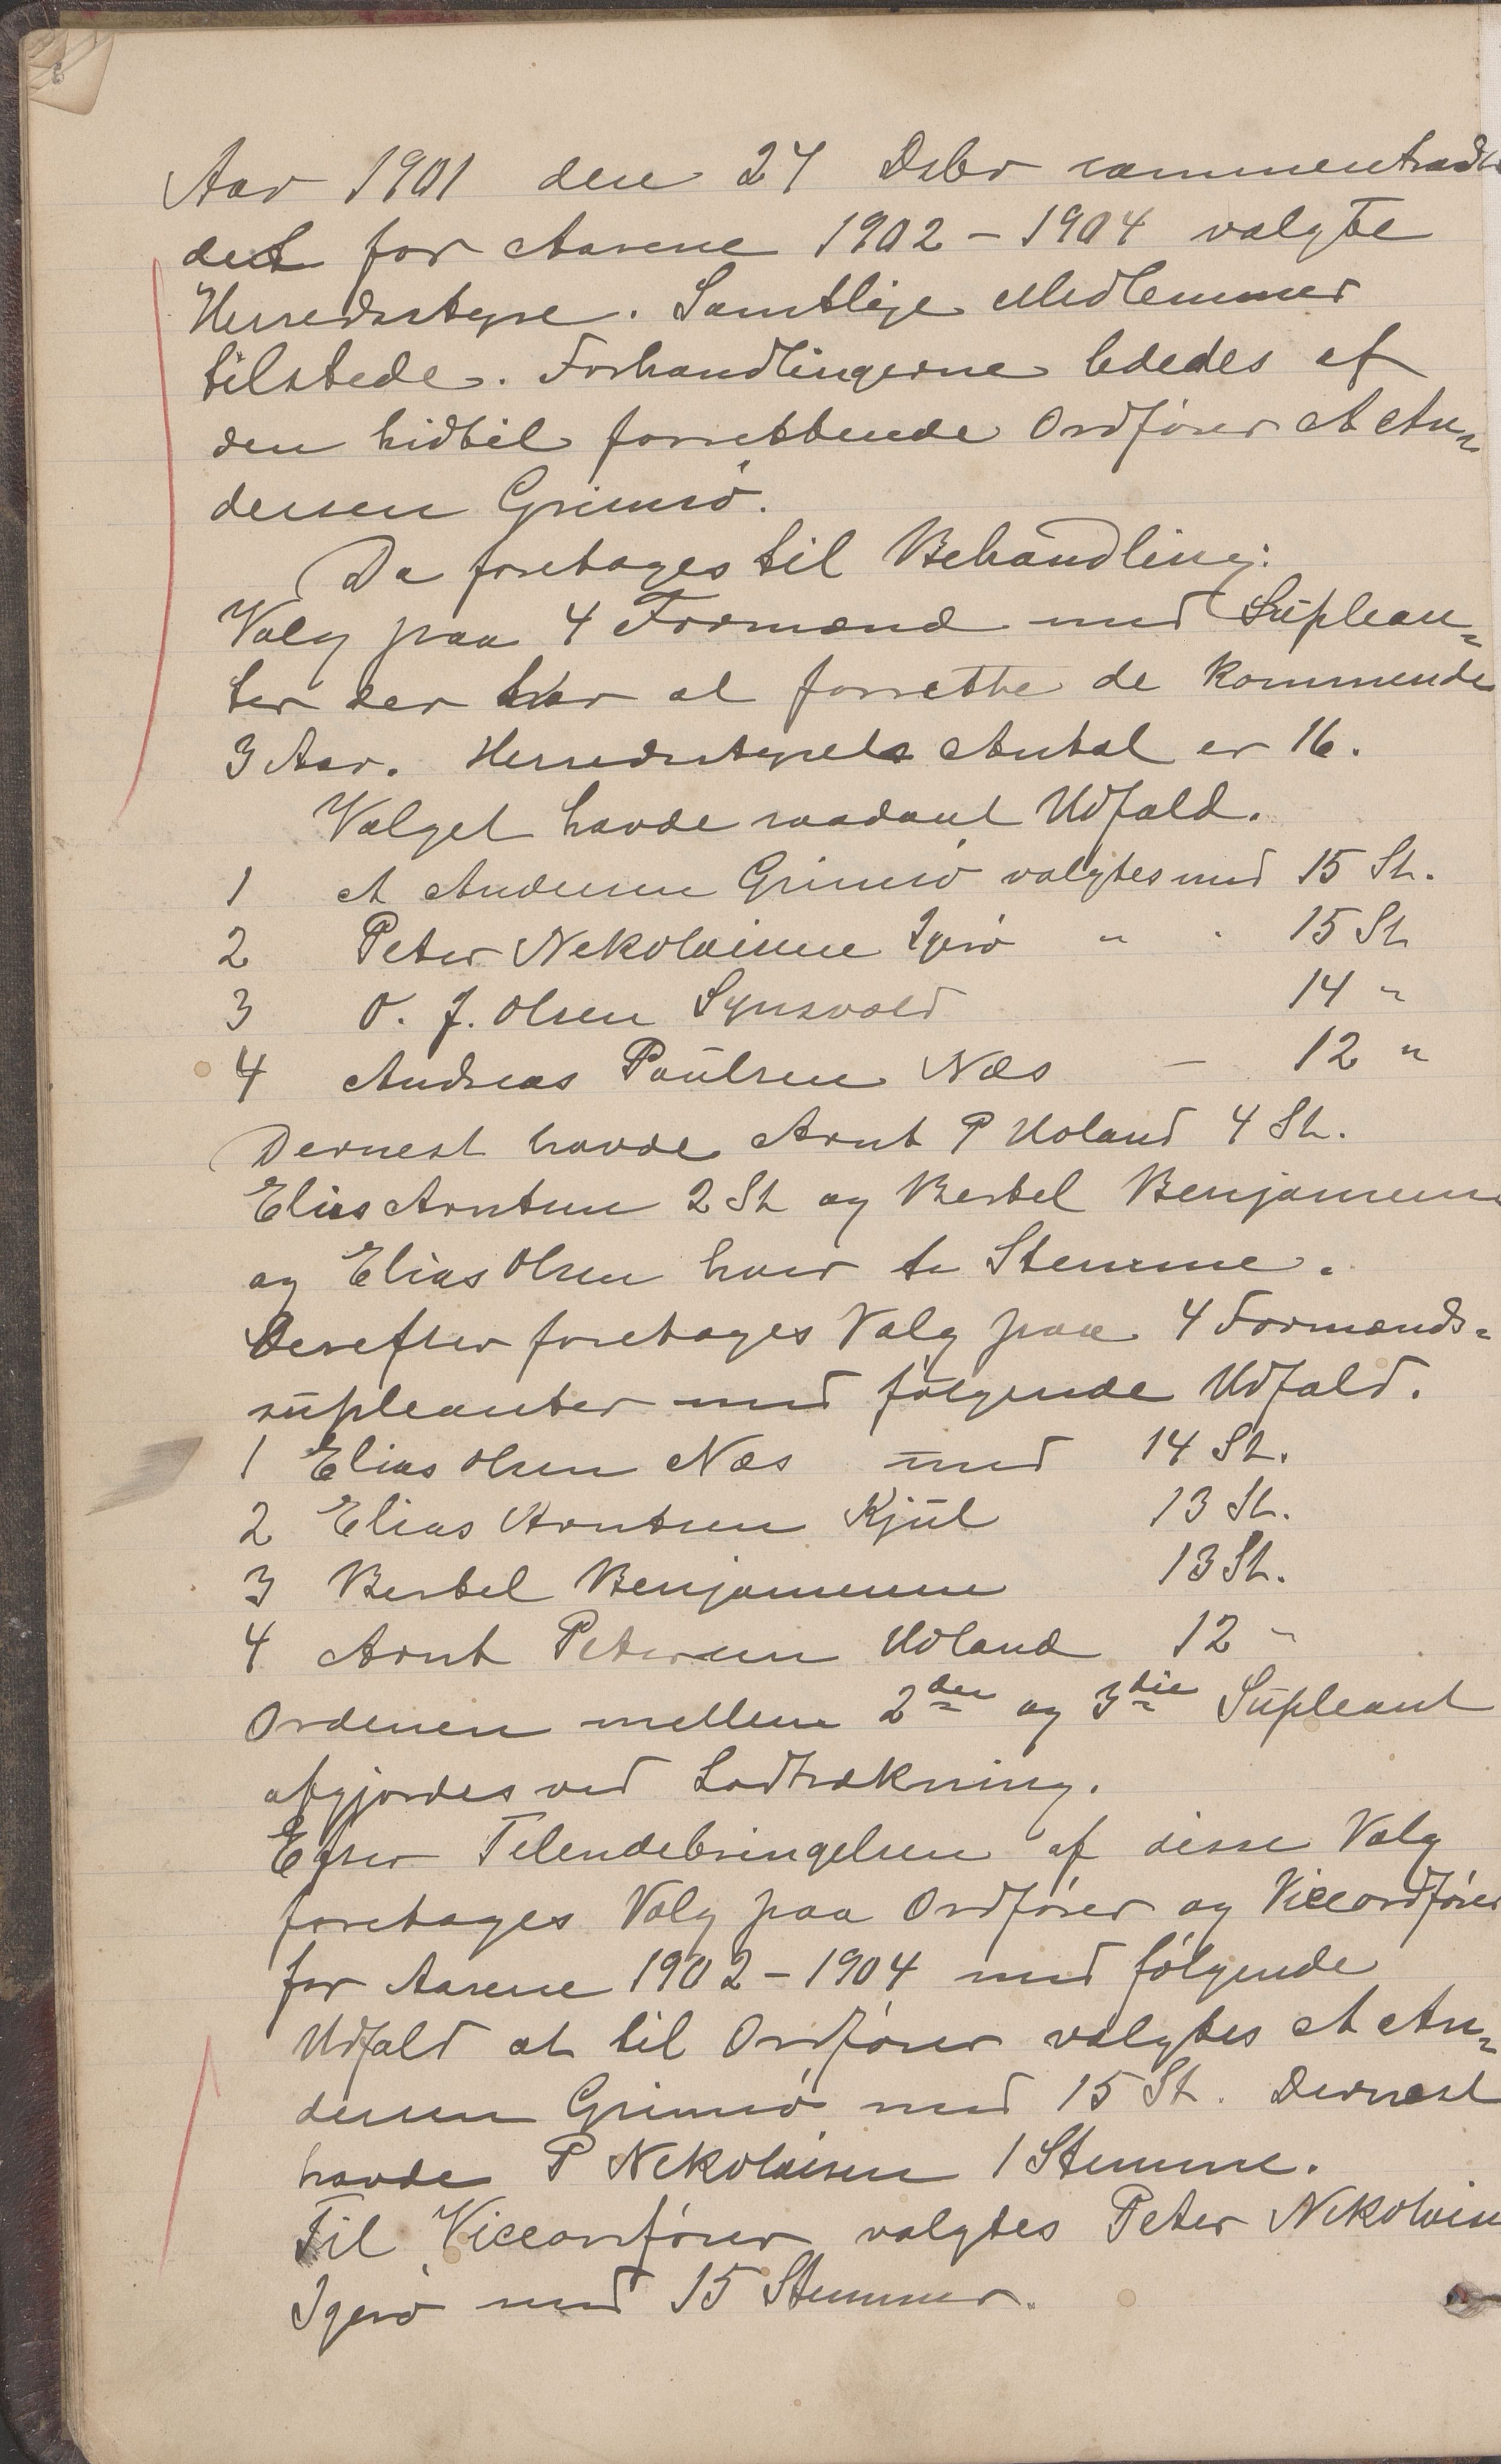 Aar 1901 den 27 Dsbr sammentraadte
det for Aarene 1902 - 1904 valgte
Herredsstyre. Samtlige Medlemmer
tilstede. Forhandlingerne lededes af
den hidtil forrettende Ordfører A An-
dersen Grimsø.
Da foretages til Behandling:
Valg paa 4 Formænd med Suplean-
ter der har at forrette de kommende
3 Aar. Herredsstyrets Antal er 16.
Valget havde saadant Udfald.
1 A Andersen Grimsø valgtes med 15 St.
2 Peter Nekolaisen Igerø " " 15 St
3 O. J. Olsen Synsvold 14 "
4 Andreas Paulsen Næs - 12 "
Dernest havde Arnt P Holand 4 St.
Elias Arntsen 2 St og Bertel Benjaminsen
og Elias Olsen hver en Stemme.
Derefter foretages Valg paa 4 Formænds-
supleanter med følgende Udfald.
1 Elias Olsen Næs med 14 St.
2 Elias Arntsen Kjul 13 St.
3 Bertel Benjaminsen 13 St.
4 Arnt Petersen Holand 12 "
Ordenen mellem 2den og 3die Supleant
afgjordes ved Lodtrækning.
Efter Telendebringelsen af disse Valg
foretages Valg paa Ordfører og Viceordfører
for Aarene 1902 - 1904 med følgende
Udfald at til Ordfører valgtes A An-
dersen Grimsø med 15 St. Dernæst
havde P Nekolaisen 1 Stemme.
Til Viceordfører valgtes Peter Nekolaisen
Igerø med 15 Stemmer.